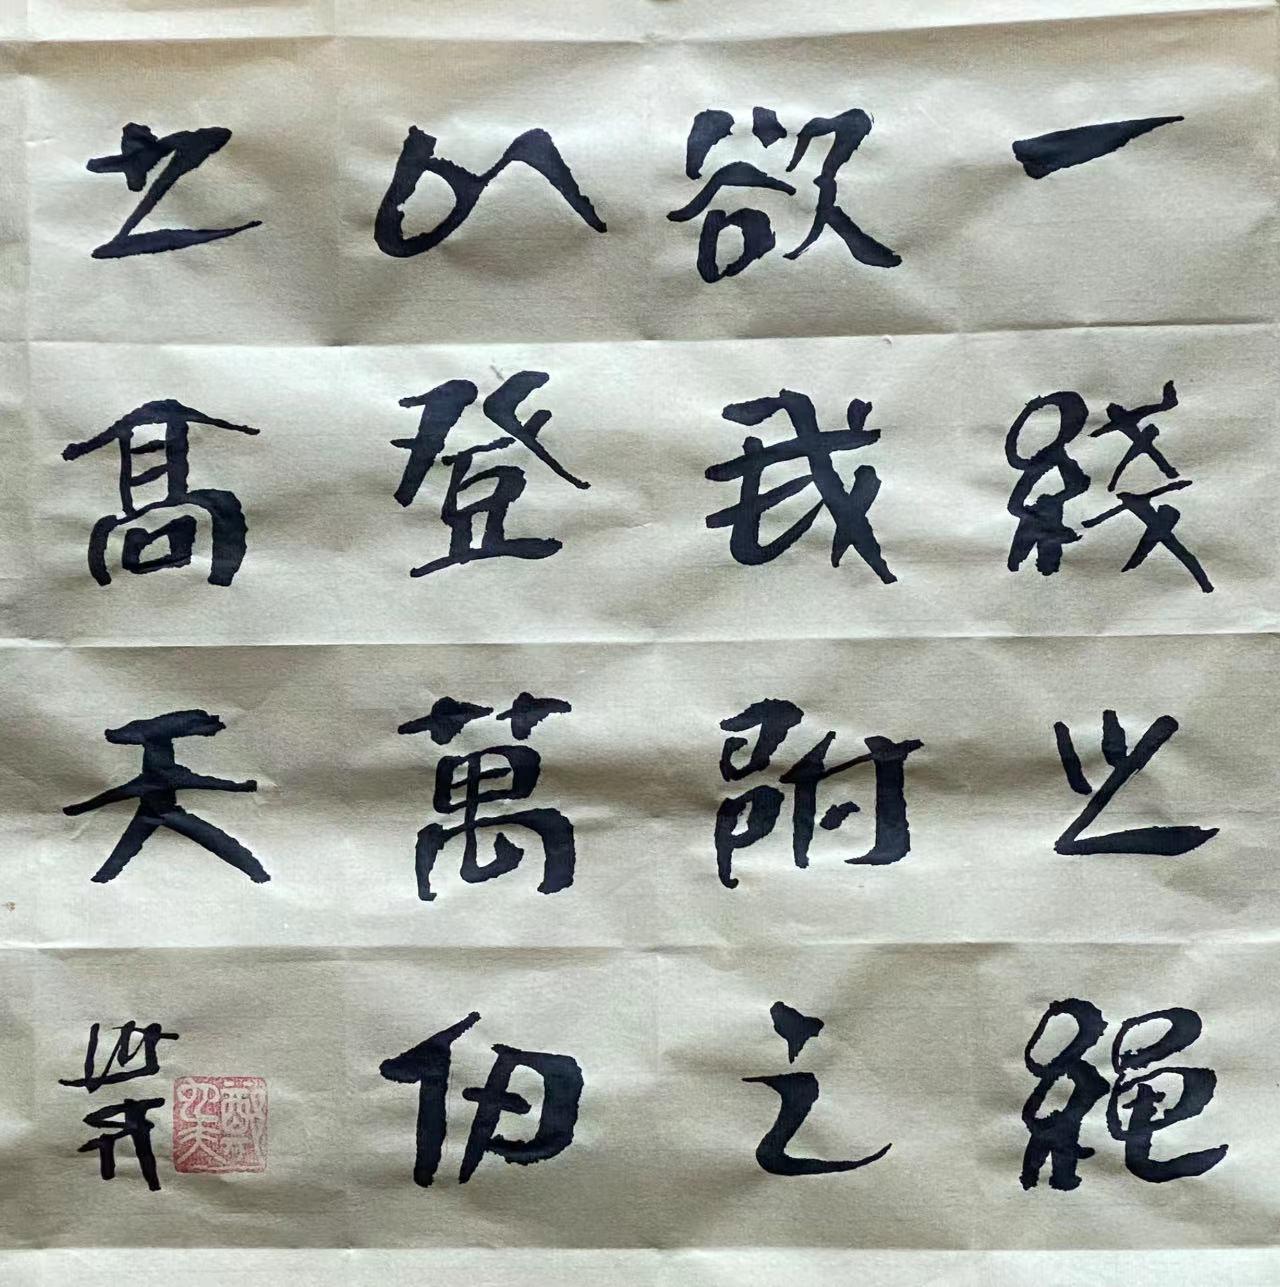 一綫之繩
欲我附之
以登萬仞
之髙天